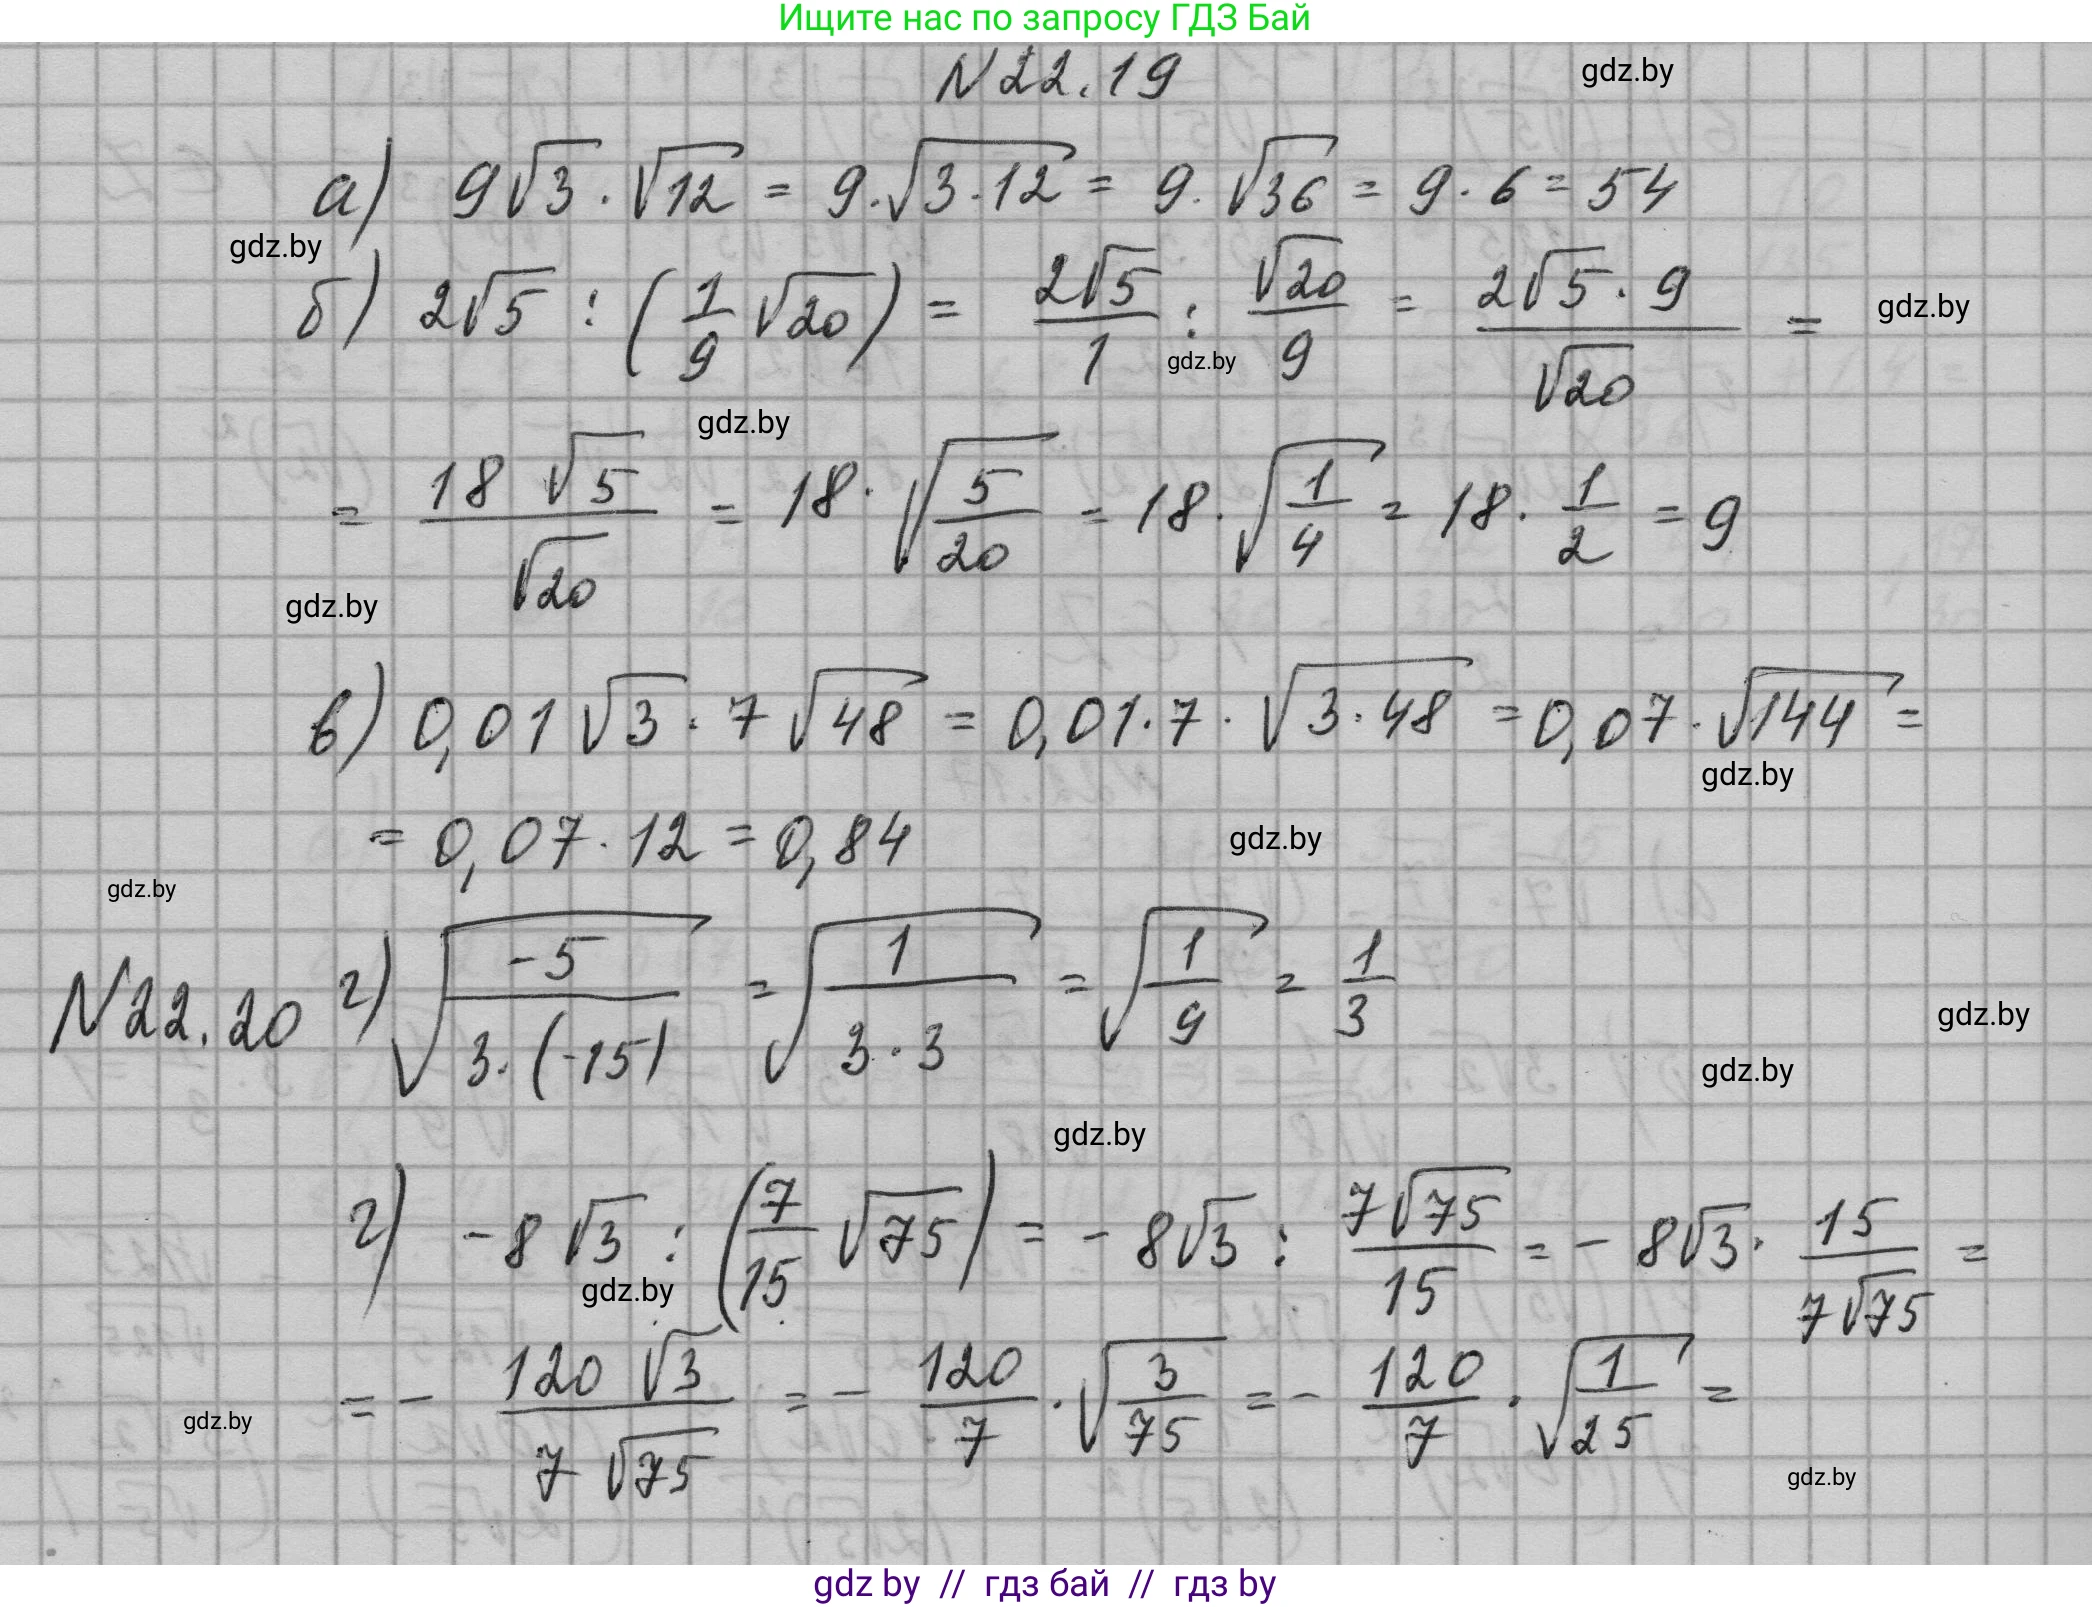 Ищите нас по запросу ГДЗ Бай
N22.19
gdz.by
а) 9√3 · √12 = 9·√3·12 = 9·√36 = 9·6 = 54
gdz.by
б) 2√5 : (1/9 √20) = 2√5/1 : √20/9 = 2√5·9/√20 =
gdz.by
gdz.by
gdz.by
= 18√5/√20 = 18·√5/20 = 18·√1/4 = 18·1/2 = 9
gdz.by
в) 0,01√3 · 7√48 = 0,01·7·√3·48 = 0,07·√144 =
gdz.by
= 0,07·12 = 0,84
gdz.by
gdz.by
N22.20 г) √-5/3·(-15) = √1/3·3 = √1/9 = 1/3
gdz.by
gdz.by
gdz.by
г) -8√3 : (7/15 √75) = -8√3 : 7√75/15 = -8√3 · 15/7√75 =
gdz.by
= - 120√3/7√75 = - 120/7 · √3/75 = - 120/7 · √1/25 =
gdz.by
gdz.by
gdz by // гдз бай // гдз by